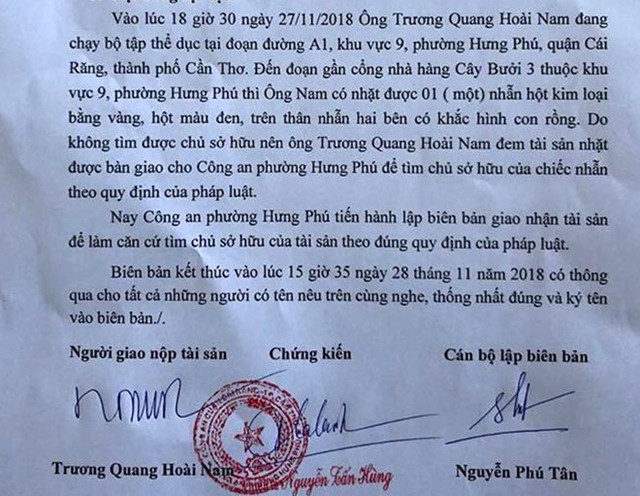 Vào lúc 18 giờ 30 ngày 27/11/2018 Ông Trương Quang Hoài Nam đang
chạy bộ tập thể dục tại đoạn đường A1, khu vực 9, phường Hưng Phú, quận Cái
Răng, thành phố Cần Thơ. Đến đoạn gần cổng nhà hàng Cây Bưởi 3 thuộc khu
vực 9, phường Hưng Phú thì Ông Nam có nhặt được 01 ( một) nhẫn hột kim loại
bằng vàng, hột màu đen, trên thân nhẫn hai bên có khắc hình con rồng. Do
không tìm được chủ sở hữu nên ông Trương Quang Hoài Nam đem tài sản nhặt
được bàn giao cho Công an phường Hưng Phú để tìm chủ sở hữu của chiếc nhẫn
theo quy định của pháp luật.
Nay Công an phường Hưng Phú tiến hành lập biên bản giao nhận tài sản
để làm căn cứ tìm chủ sở hữu của tài sản theo đúng quy định của pháp luật.
Biên bản kết thúc vào lúc 15 giờ 35 ngày 28 tháng 11 năm 2018 có thông
qua cho tất cả những người có tên nêu trên cùng nghe, thống nhất đúng và ký tên
vào biên bản./.
Người giao nộp tài sản Chứng kiến Cán bộ lập biên bản
Trương Quang Hoài Nam Nguyễn Tấn Hùng Nguyễn Phú Tân